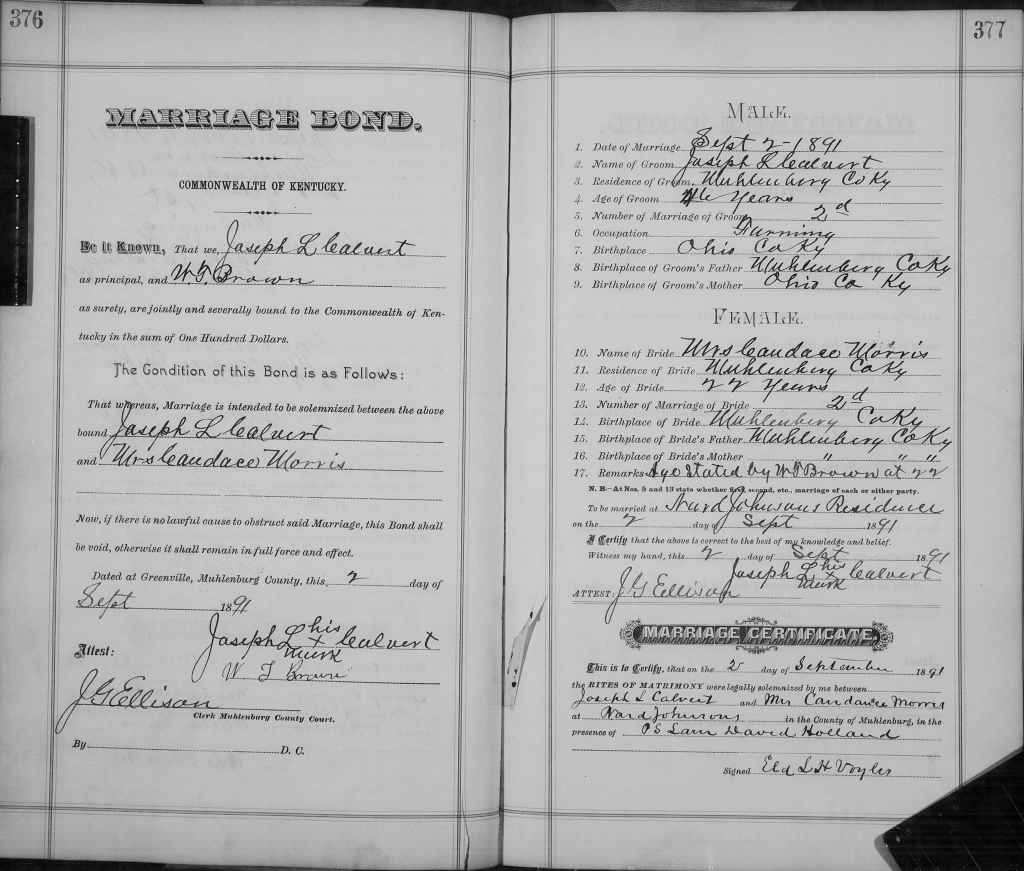 376
MARRIAGE BOND.
COMMONWEALTH OF KENTUCKY.
Be it Known, That we, Joseph L Calvert
as principal, and W.T. Brown
as surety, are jointly and severally bound to the Commonwealth of Ken-
tucky in the sum of One Hundred Dollars.
The Condition of this Bond is as Follows:
That whereas, Marriage is intended to be solemnized between the above
bound Joseph L Calvert
and Mrs Candace Morris
Now, if there is no lawful cause to obstruct said Marriage, this Bond shall
be void, otherwise it shall remain in full force and effect.
Dated at Greenville, Muhlenburg County, this 2 day of
Sept 1891
Attest: Joseph L his x mark Calvert
W T Brown
J G Ellison
Clerk Muhlenburg County Court.
By D. C.
377
MALE.
1. Date of Marriage Sept 2-1891
2. Name of Groom Joseph L Calvert
3. Residence of Groom Muhlenberg Co Ky
4. Age of Groom 46 Years
5. Number of Marriage of Groom 2d
6. Occupation Farming
7. Birthplace Ohio Co Ky
8. Birthplace of Groom's Father Muhlenberg Co Ky
9. Birthplace of Groom's Mother Ohio Co Ky
FEMALE.
10. Name of Bride Mrs Candace Morris
11. Residence of Bride Muhlenberg Co Ky
12. Age of Bride 22 Years
13. Number of Marriage of Bride 2d
14. Birthplace of Bride Muhlenberg Co Ky
15. Birthplace of Bride's Father Muhlenberg Co Ky
16. Birthplace of Bride's Mother " " "
17. Remarks Age Stated by W T Brown at 22
N. B—At Nos. 5 and 13 state whether first, second, etc., marriage of each or either party.
To be married at Nard Johnsons Residence
on the 2 day of Sept 1891
I Certify that the above is correct to the best of my knowledge and belief.
Witness my hand, this 2 day of Sept 1891
Joseph L his x mark Calvert
ATTEST: J G Ellison
MARRIAGE CERTIFICATE.
This is to Certify, that on the 2 day of September 1891
the RITES OF MATRIMONY were legally solemnized by me between
Joseph L Calvert and Mrs Candance Morris
at Nard Johnsons in the County of Muhlenburg, in the
presence of P S Lam David Holland
Signed Eld L H Voyles